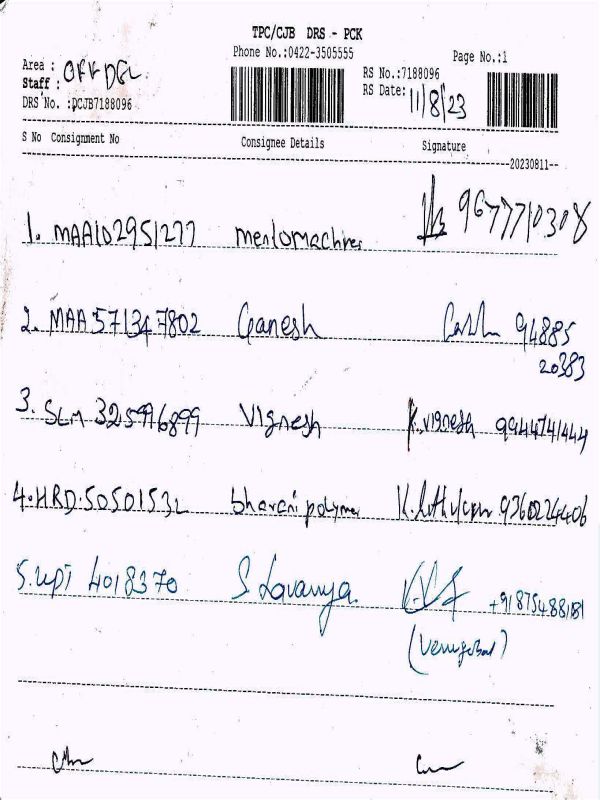 TPC/CJB DRS - PCK
Phone No.:0422-3505555
Page No.:1
Area : OFF DEL
Staff :
DRS No. :DCJB7188096
RS No.:7188096
RS Date: 11/8/23
S No Consignment No Consignee Details Signature
20230811
1. MAA102951277 9677710308
2. MAA571347802 Ganesh 94885
20383
3. SLM 325996899 Vignesh K.Vignesh 9944741444
4. HRD.5050153 bharani polymer 9360224406
5. UPT 4018370 S Lavanya +918754881181